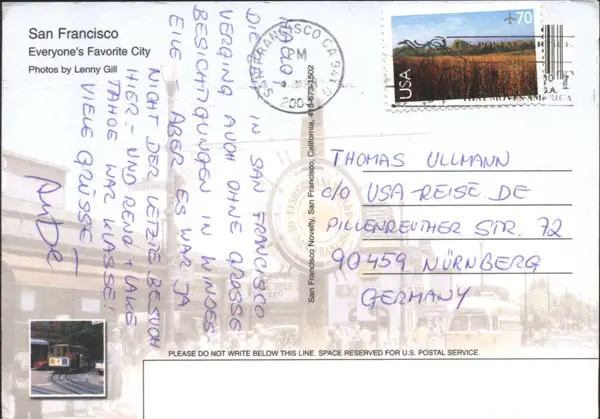 San Francisco
Everyone's Favorite City
Photos by Lenny Gill
HALLO!
DIE IN SAN FRANCISCO
VERGING AUCH OHNE GROSSE
BESICHTIGUNGEN IN WINDES
EILE ABER ES WAR JA
NICHT DER LETZTE BESUCH
HIER - UND RENO + LAKE
TAHOE WAR KLASSE!
VIELE GRÜSSE -
SAN FRANCISCO CA 941
PM
USA
70
San Francisco Novelty, San Francisco, California, 415-673-1502
THOMAS ULLMANN
c/o USA-REISE.DE
PILLENREUTHER STR. 72
90459 NÜRNBERG
GERMANY
PLEASE DO NOT WRITE BELOW THIS LINE. SPACE RESERVED FOR U.S. POSTAL SERVICE.